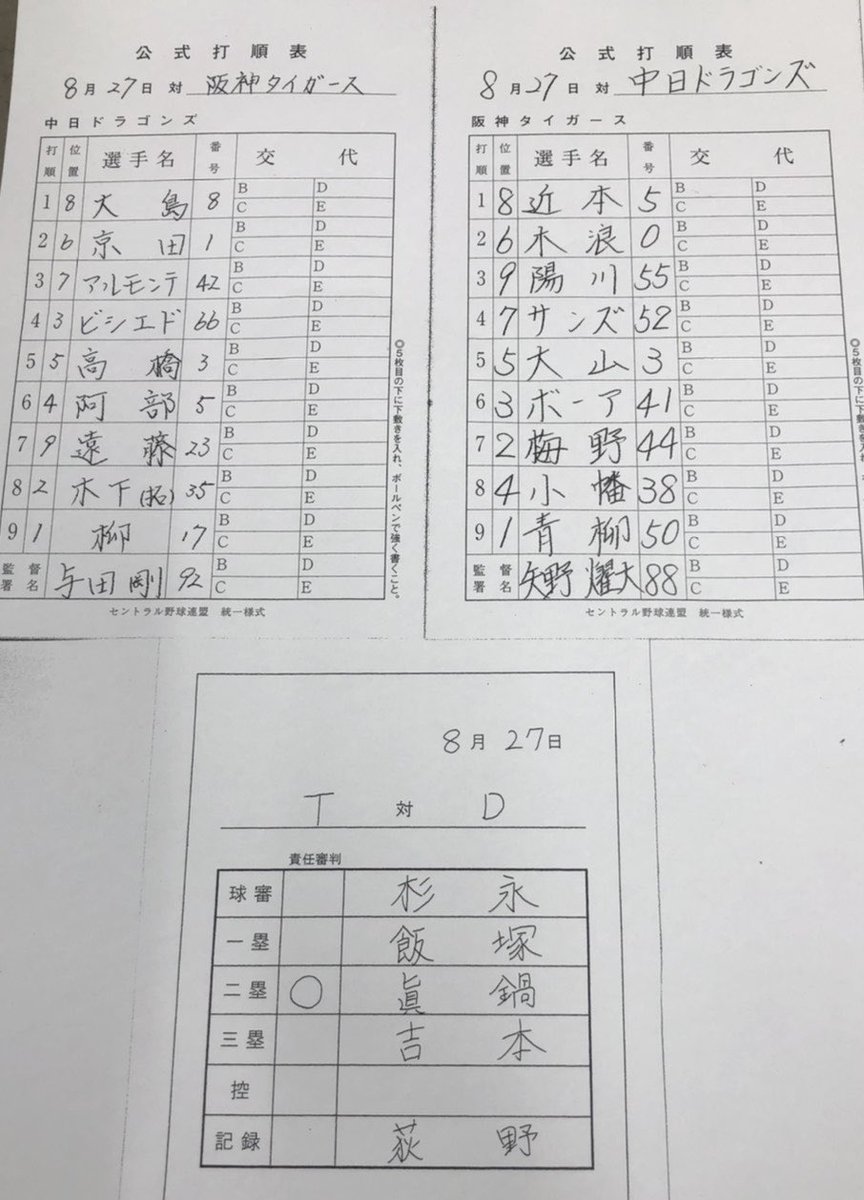 公式打順表
8月27日 対 阪神タイガース
中日ドラゴンズ
打順 位置 選手名 番号 交代
1 8 大島 8 B D C E
2 6 京田 1 B D C E
3 7 アルモンテ 42 B D C E
4 3 ビシエド 66 B D C E
5 5 高橋 3 B D C E
6 4 阿部 5 B D C E
7 9 遠藤 23 B D C E
8 2 木下(拓) 35 B D C E
9 1 柳 17 B D C E
監督署名 与田剛 92 B D C E
セントラル野球連盟 統一様式
◎5枚目の下に下敷きを入れ、ボールペンで強く書くこと。
公式打順表
8月27日 対 中日ドラゴンズ
阪神タイガース
打順 位置 選手名 番号 交代
1 8 近本 5 B D C E
2 6 木浪 0 B D C E
3 9 陽川 55 B D C E
4 7 サンズ 52 B D C E
5 5 大山 3 B D C E
6 3 ボーア 41 B D C E
7 2 梅野 44 B D C E
8 4 小幡 38 B D C E
9 1 青柳 50 B D C E
監督署名 矢野燿大 88 B D C E
セントラル野球連盟 統一様式
◎5枚目の下に下敷きを入れ、ボ
8月27日
T 対 D
責任審判
球審 杉永
一塁 飯塚
二塁 ○ 眞鍋
三塁 吉本
控
記録 荻野